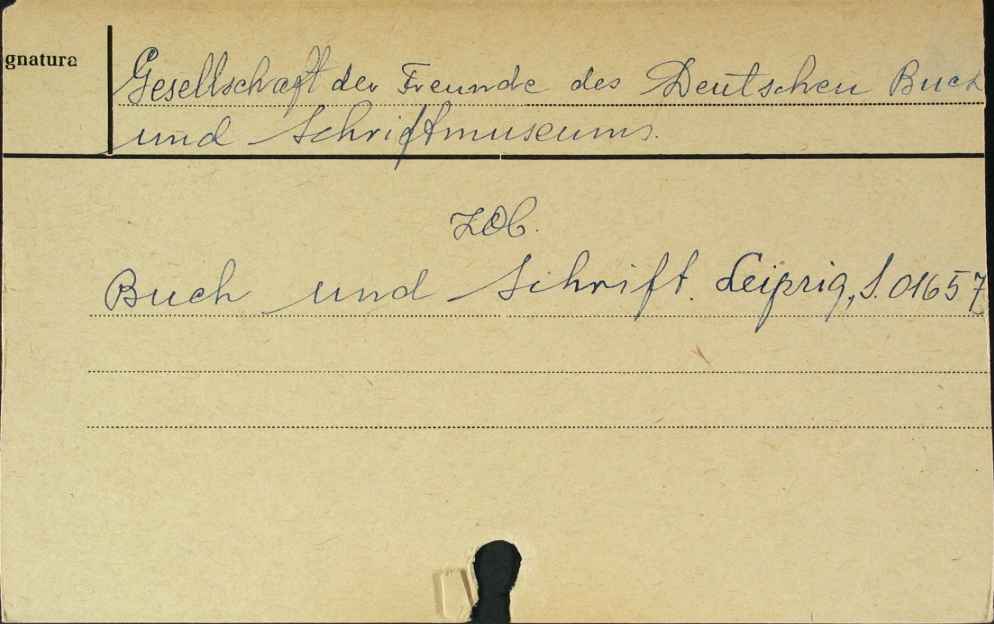 gnatura
Gesellschaft der Freunde des Deutschen Buch
und Schriftmuseums.
zob.
Buch und Schrift. Leipzig, S. 01657